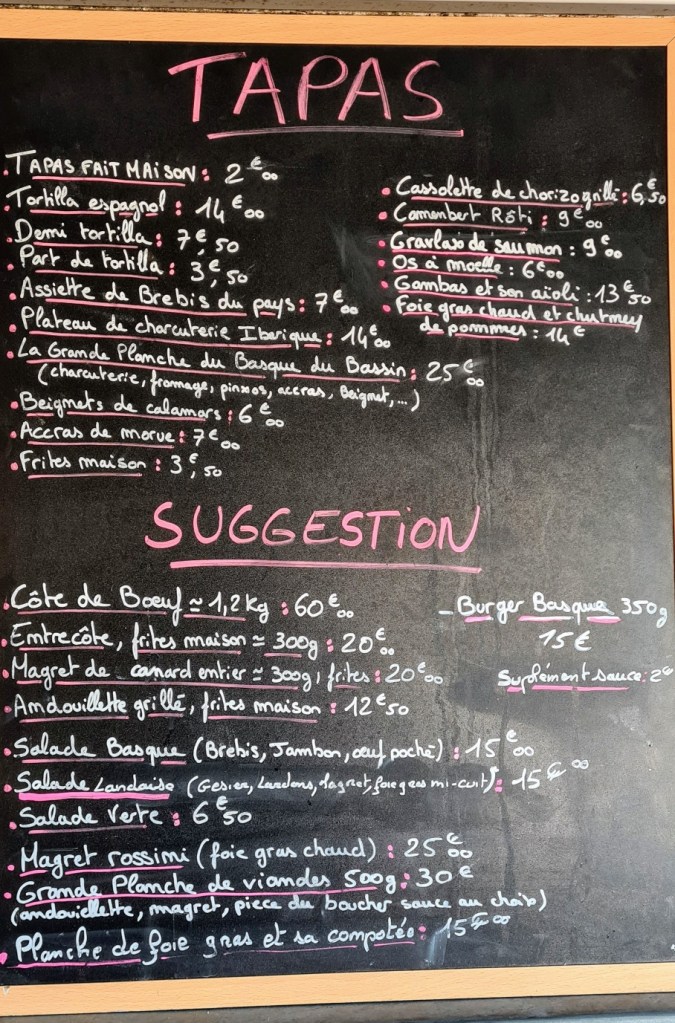 TAPAS
• TAPAS FAIT MAISON : 2€00
• Tortilla espagnol : 14€00
• Demi tortilla : 7€,50
• Part de tortilla : 3€,50
• Assiette de Brebis du pays : 7€00
• Plateau de charcuterie Iberique : 14€00
• La Grande Planche du Basque du Bassin : 25€00
(charcuterie, fromage, pinxos, accras, Beignet,...)
• Beignets de calamars : 6€00
• Accras de morue : 7€00
• Frites maison : 3€,50
• Cassolette de chorizo grillé : 6€,50
• Camembert Rôti : 9€00
• Gravlax de saumon : 9€00
• Os à moelle : 6€00
• Gambas et son aïoli : 13€50
• Foie gras chaud et chutney
de pommes : 14€
SUGGESTION
• Côte de Boeuf ≃ 1,2kg : 60€00
• Entrecôte, frites maison ≃ 300g : 20€00
• Magret de canard entier ≃ 300g, frites : 20€00
• Andouillette grillé, frites maison : 12€50
– Burger Basque 350g
15€
Suplément sauce : 2€
• Salade Basque (Brebis, Jambon, oeuf poché) : 15€00
• Salade Landaise (Gesier, Lardons, Magret, foie gras mi-cuit) : 15€00
• Salade Verte : 6€50
• Magret rossini (foie gras chaud) : 25€00
• Grande Planche de viandes 500g : 30€
(andouiellette, magret, piece du boucher sauce au choix)
• Planche de foie gras et sa compotée : 15€00